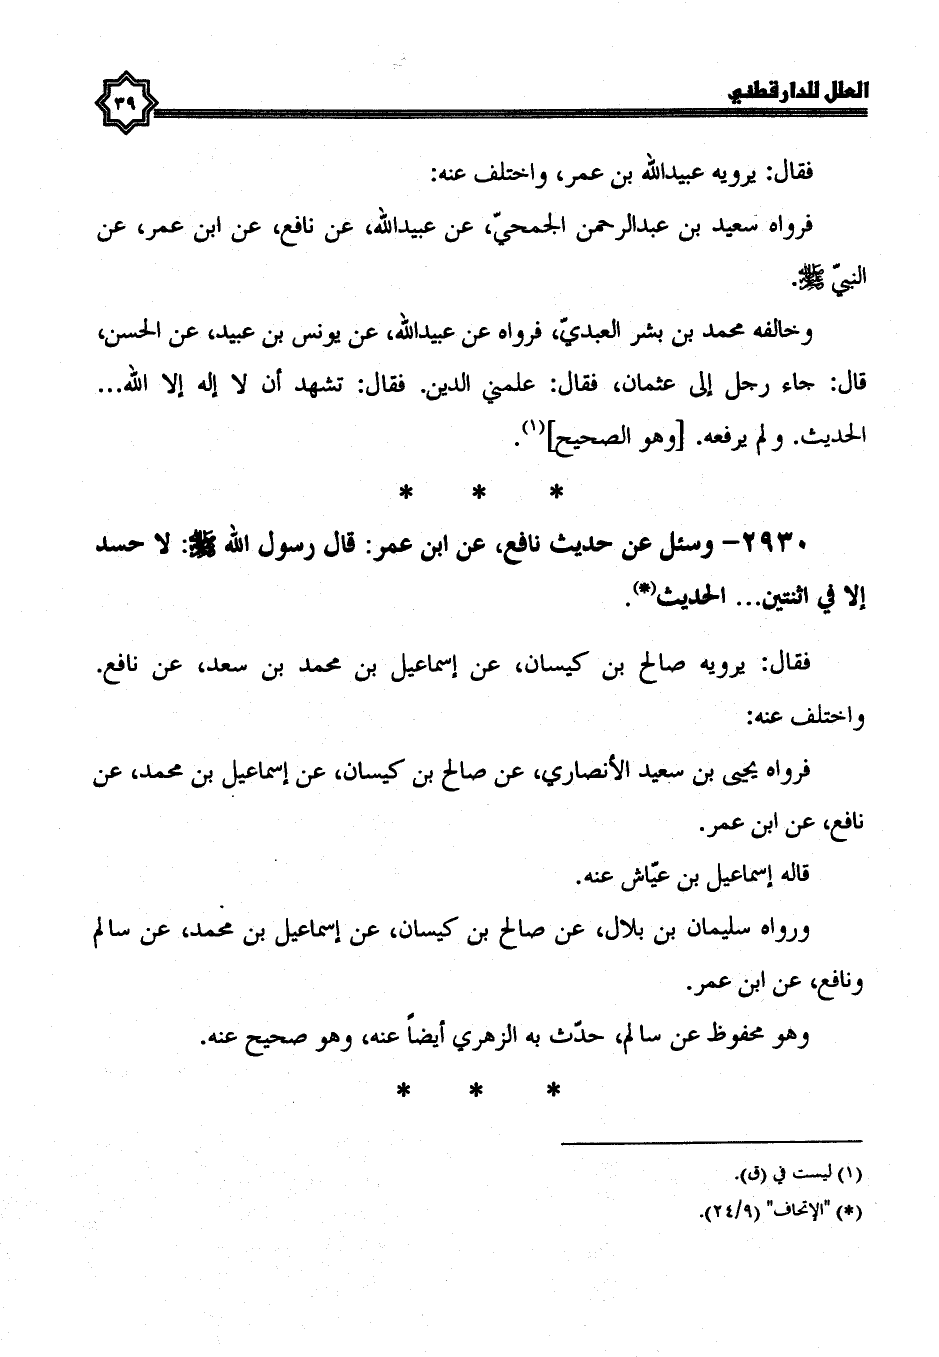 العلل للدارقطني
٣٩
فقال: يرويه عبيدالله بن عمر، واختلف عنه:
فرواه سعيد بن عبدالرحمن الجمحيّ، عن عبيدالله، عن نافع، عن ابن عمر، عن
النبيّ ﷺ.
وخالفه محمد بن بشر العبديّ، فرواه عن عبيدالله، عن يونس بن عبيد، عن الحسن،
قال: جاء رجل إلى عثمان، فقال: علمني الدين. فقال: تشهد أن لا إله إلا الله...
الحديث. ولم يرفعه. [وهو الصحيح](١).
* * *
٢٩٣٠- وسئل عن حديث نافع، عن ابن عمر: قال رسول الله ﷺ: لا حسد
إلا في اثنتين... الحديث(*).
فقال: يرويه صالح بن كيسان، عن إسماعيل بن محمد بن سعد، عن نافع.
واختلف عنه:
فرواه يحيى بن سعيد الأنصاري، عن صالح بن كيسان، عن إسماعيل بن محمد، عن
نافع، عن ابن عمر.
قاله إسماعيل بن عيّاش عنه.
ورواه سليمان بن بلال، عن صالح بن كيسان، عن إسماعيل بن محمد، عن سالم
ونافع، عن ابن عمر.
وهو محفوظ عن سالم، حدّث به الزهري أيضاً عنه، وهو صحيح عنه.
* * *
(١) ليست في (ق).
(*) "الإتحاف" (٢٤/٩).